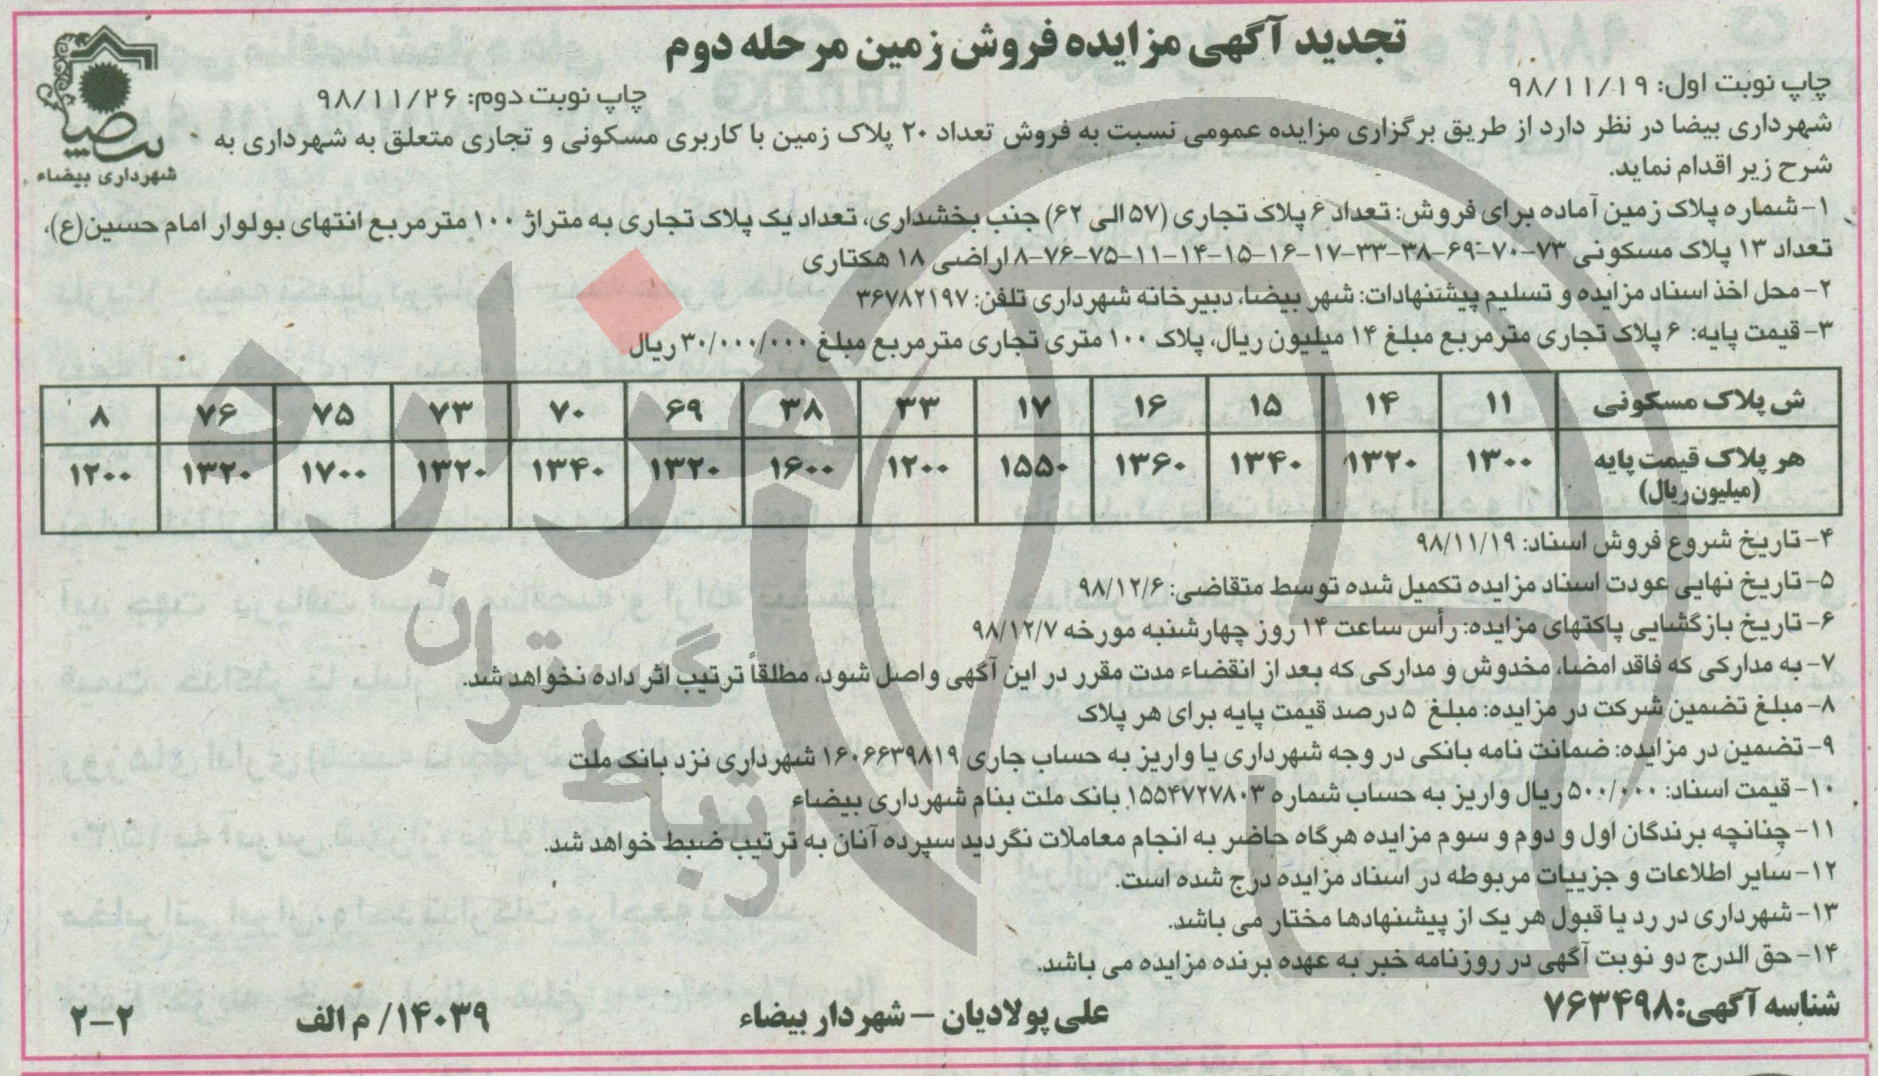 تجدید آگهی مزایده فروش زمین مرحله دوم
چاپ نوبت اول: ۹۸/۱۱/۱۹
چاپ نوبت دوم: ۹۸/۱۱/۲۶
بیضا
شهرداری بیضاء
شهرداری بیضا در نظر دارد از طریق برگزاری مزایده عمومی نسبت به فروش تعداد ۲۰ پلاک زمین با کاربری مسکونی و تجاری متعلق به شهرداری به
شرح زیر اقدام نماید.
۱- شماره پلاک زمین آماده برای فروش: تعداد ۶ پلاک تجاری (۵۷ الی ۶۲) جنب بخشداری، تعداد یک پلاک تجاری به متراژ ۱۰۰ مترمربع انتهای بولوار امام حسین(ع)،
تعداد ۱۳ پلاک مسکونی ۷۳-۷۰-۶۹-۳۸-۳۳-۱۷-۱۶-۱۵-۱۴-۱۱-۷۵-۷۶-۸ اراضی ۱۸ هکتاری
۲- محل اخذ اسناد مزایده و تسلیم پیشنهادات: شهر بیضا، دبیرخانه شهرداری تلفن: ۳۶۷۸۲۱۹۷
۳- قیمت پایه: ۶ پلاک تجاری مترمربع مبلغ ۱۴ میلیون ریال، پلاک ۱۰۰ متری تجاری مترمربع مبلغ ۳۰/۰۰۰/۰۰۰ ریال
ش پلاک مسکونی ۱۱ ۱۴ ۱۵ ۱۶ ۱۷ ۳۳ ۳۸ ۶۹ ۷۰ ۷۳ ۷۵ ۷۶ ۸
هر پلاک قیمت پایه ۱۳۰۰ ۱۳۲۰ ۱۳۴۰ ۱۳۶۰ ۱۵۵۰ ۱۲۰۰ ۱۶۰۰ ۱۳۲۰ ۱۳۴۰ ۱۳۲۰ ۱۷۰۰ ۱۳۲۰ ۱۲۰۰
(میلیون ریال)
۴- تاریخ شروع فروش اسناد: ۹۸/۱۱/۱۹
۵- تاریخ نهایی عودت اسناد مزایده تکمیل شده توسط متقاضی: ۹۸/۱۲/۶
۶- تاریخ بازگشایی پاکتهای مزایده: رأس ساعت ۱۴ روز چهارشنبه مورخه ۹۸/۱۲/۷
۷- به مدارکی که فاقد امضا، مخدوش و مدارکی که بعد از انقضاء مدت مقرر در این آگهی واصل شود، مطلقاً ترتیب اثر داده نخواهد شد.
۸- مبلغ تضمین شرکت در مزایده: مبلغ ۵ درصد قیمت پایه برای هر پلاک
۹- تضمین در مزایده: ضمانت نامه بانکی در وجه شهرداری یا واریز به حساب جاری ۱۶۰۶۶۳۹۸۱۹ شهرداری نزد بانک ملت
۱۰- قیمت اسناد: ۵۰۰/۰۰۰ ریال واریز به حساب شماره ۱۵۵۴۷۲۷۸۰۳ بانک ملت بنام شهرداری بیضاء
۱۱- چنانچه برندگان اول و دوم و سوم مزایده هرگاه حاضر به انجام معاملات نگردید سپرده آنان به ترتیب ضبط خواهد شد.
۱۲- سایر اطلاعات و جزییات مربوطه در اسناد مزایده درج شده است.
۱۳- شهرداری در رد یا قبول هر یک از پیشنهادها مختار می باشد.
۱۴- حق الدرج دو نوبت آگهی در روزنامه خبر به عهده برنده مزایده می باشد.
شناسه آگهی: ۷۶۳۴۹۸
علی پولادیان - شهردار بیضاء
۱۴۰۳۹/ م الف
۲-۲
هزاره
گستران
ارتباط